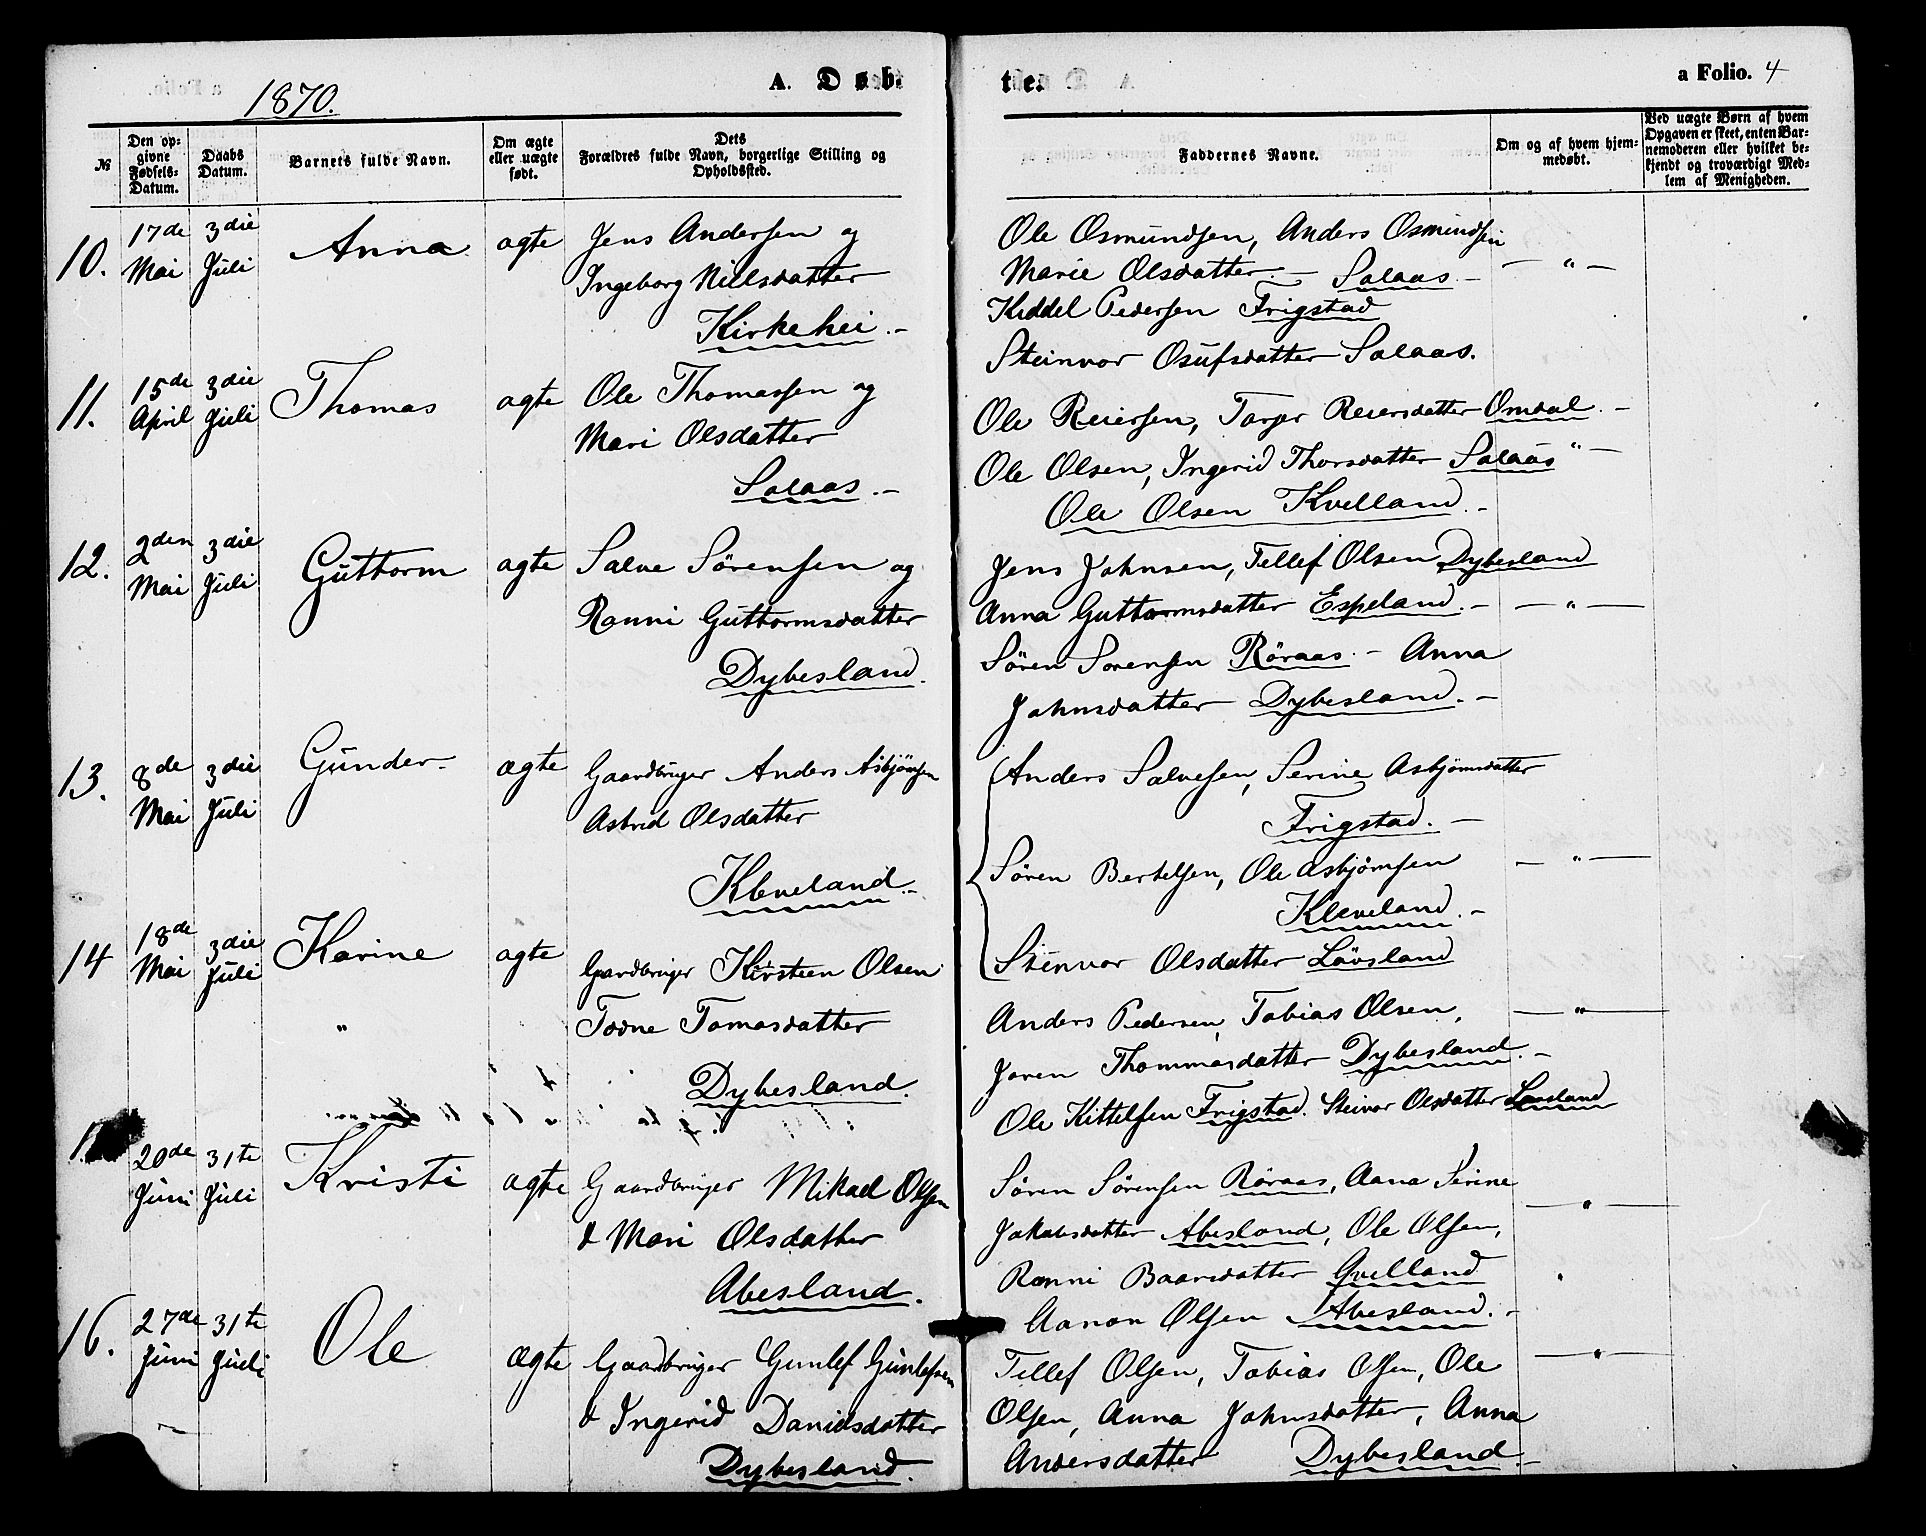 1870.
A. Døb-
te.
a Folio. 4
№
Den op-
givne
Fødsels-
Datum.
Daabs
Datum.
Barnets fulde Navn.
Om ægte
eller uægte
født.
Dets
Forældres fulde Navn, borgerlige Stilling og
Opholdssted.
Faddernes Navne.
Om og af hvem hjem-
medøbt.
Ved uægte Børn af hvem
Opgaven er skeet, enten Bar-
nemoderen eller hvilket be-
kjendt og troværdigt Med-
lem af Menigheden.
10.
17de
Mai
3die
Juli
Anna
ægte
Jens Andersen og
Ingeborg Nillsdatter
Kirkehei. –
Ole Osmundsen, Anders Osmundsen
Marie Olsdatter – Salaas –
Kiddel Pedersen Frigstad
Steinvor Osufsdatter Salaas.
– " –
11.
15de
April
3die
Juli
Thomas
ægte
Ole Thomassen og
Mari Olsdatter
Salaas. –
Ole Reiersen, Reiersdatter Omdal. –
Ole Olsen, Ingerid Thorsdatter Salaas " –
Ole Olsen Kvelland. –
12.
2den
Mai
3die
Juli
Guttorm
ægte
Salve Sörensen og
Ronni Guttormsdatter
Dybesland.
Jens Johnsen, Tellef Olsen Dybesland
Anna Guttormsdatter Espeland. – – " –
Sören Sorensen Röraas. – Anna
Johnsdatter Dybesland. –
13.
8de
Mai
3die
Juli
Gunder
ægte
Gaardbruger Anders Asbjörnsen
Astrid Olsdatter
Kleveland. –
Anders Salvesen, Serine Asbjörnsdatter
Frigstad. –
Sören Bertelsen, Ole Asbjörnsen – " –
Kleveland. –
Steinvor Olsdatter Lövsland
14
18de
Mai
3die
Juli
Karine
"
ægte
Gaardbruger Kirsteen Olsen
Todne Tomasdatter
Dybesland.
Anders Pedersen, Tobias Olsen, – " –
Joren Thommasdatter Dybesland. –
Ole Kittelsen Frigstad. Steivor Olsdatter Lovsland
1
20de
Juni
31te
Juli
Kristi
ægte
Gaardbruger Mikael Olsen
& Mari Olsdatter
Abesland.
Sören Sörensen Röraas, Aana Serine
Jakobsdatter Abesland, Ole Olsen, – " –
Ronni Baardsdatter Qvelland
Aanon Olsen Abesland. –
16.
27de
Juni
31te
Juli
Ole
ægte
Gaardbruger Gunlef Gunlefsen
& Ingerid Danielsdatter
Dybesland.
Tellef Olsen, Tobias Olsen, Ole – " –
Olsen, Anna Johnsdatter, Anna
Andersdatter Dybesland –